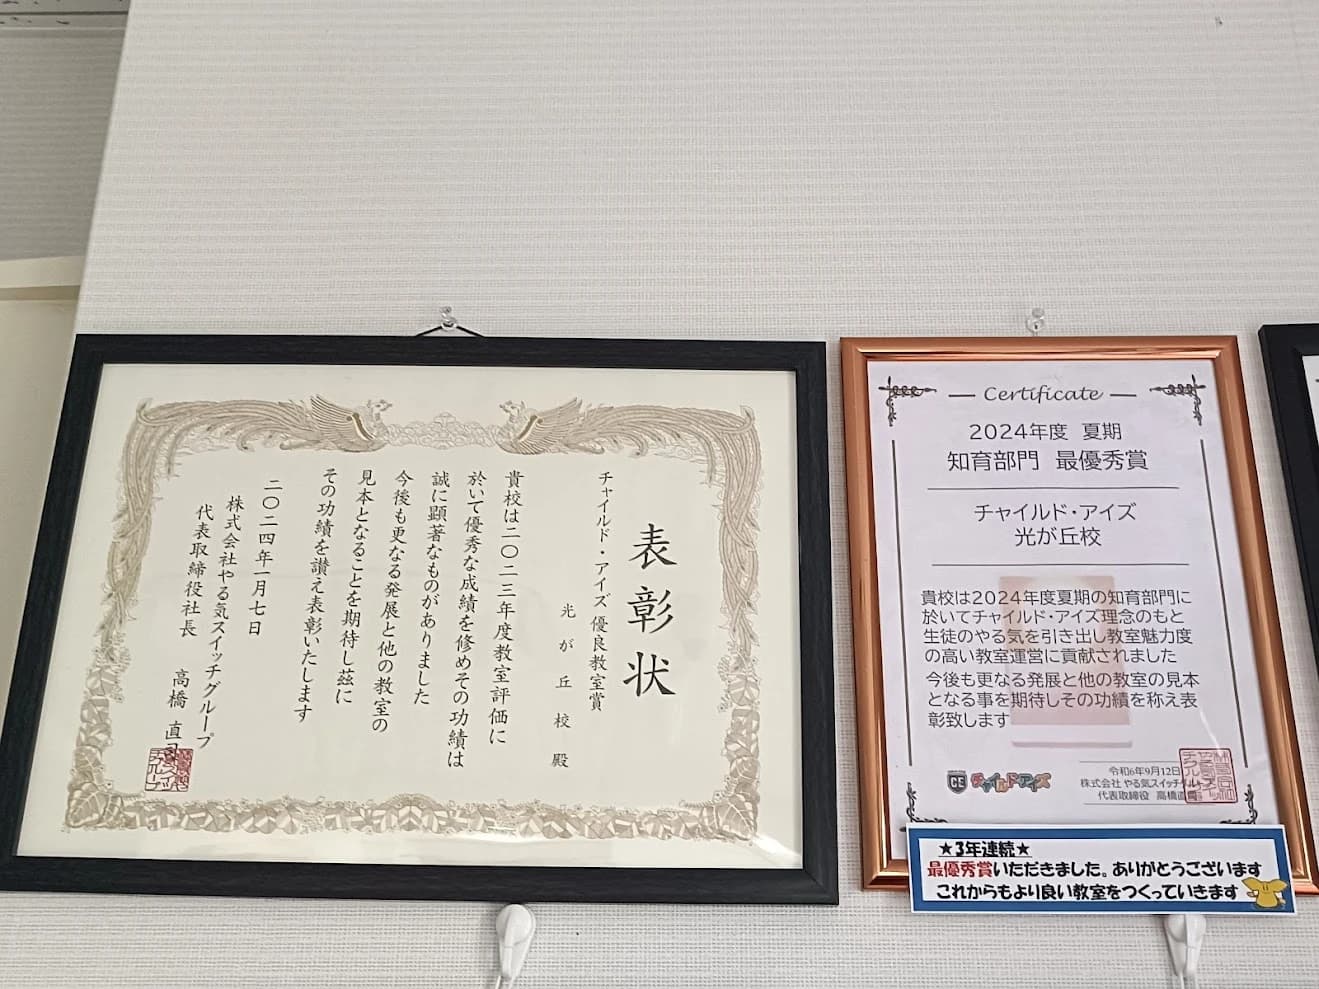 表彰状
チャイルド・アイズ優良教室賞
光が丘校殿
貴校は二〇二三年度教室評価に
於いて優秀な成績を修めその功績は
誠に顕著なものがありました
今後も更なる発展と他の教室の
見本となることを期待し茲に
その功績を讃え表彰いたします
二〇二四年一月七日
株式会社やる気スイッチグループ
代表取締役社長 高橋 直司
Certificate
2024年度 夏期
知育部門 最優秀賞
チャイルド・アイズ
光が丘校
貴校は2024年度夏期の知育部門に
於いてチャイルド・アイズ理念のもと
生徒のやる気を引き出し教室魅力度
の高い教室運営に貢献されました
今後も更なる発展と他の教室の見本
となる事を期待しその功績を称え表
彰致します
CE チャイルド・アイズ
令和6年9月12日
株式会社 やる気スイッチグループ
代表取締役 高橋直司
★3年連続★
最優秀賞いただきました。ありがとうございます
これからもより良い教室をつくっていきます